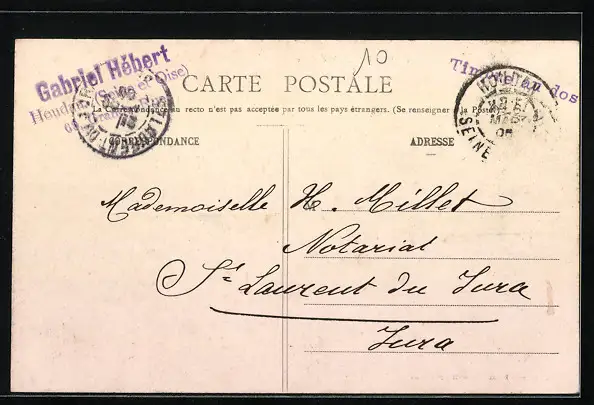 10
Gabriel Hébert
Houdan (Seine et Oise)
Timbre au dos
CARTE POSTALE
La Correspondance au recto n'est pas acceptée par tous les pays étrangers. (Se renseigner à la Poste)
CORRESPONDANCE
ADRESSE
HOUDAN
SEINE
Mademoiselle H. Millet
Notariat
St Laurent du Jura
Jura